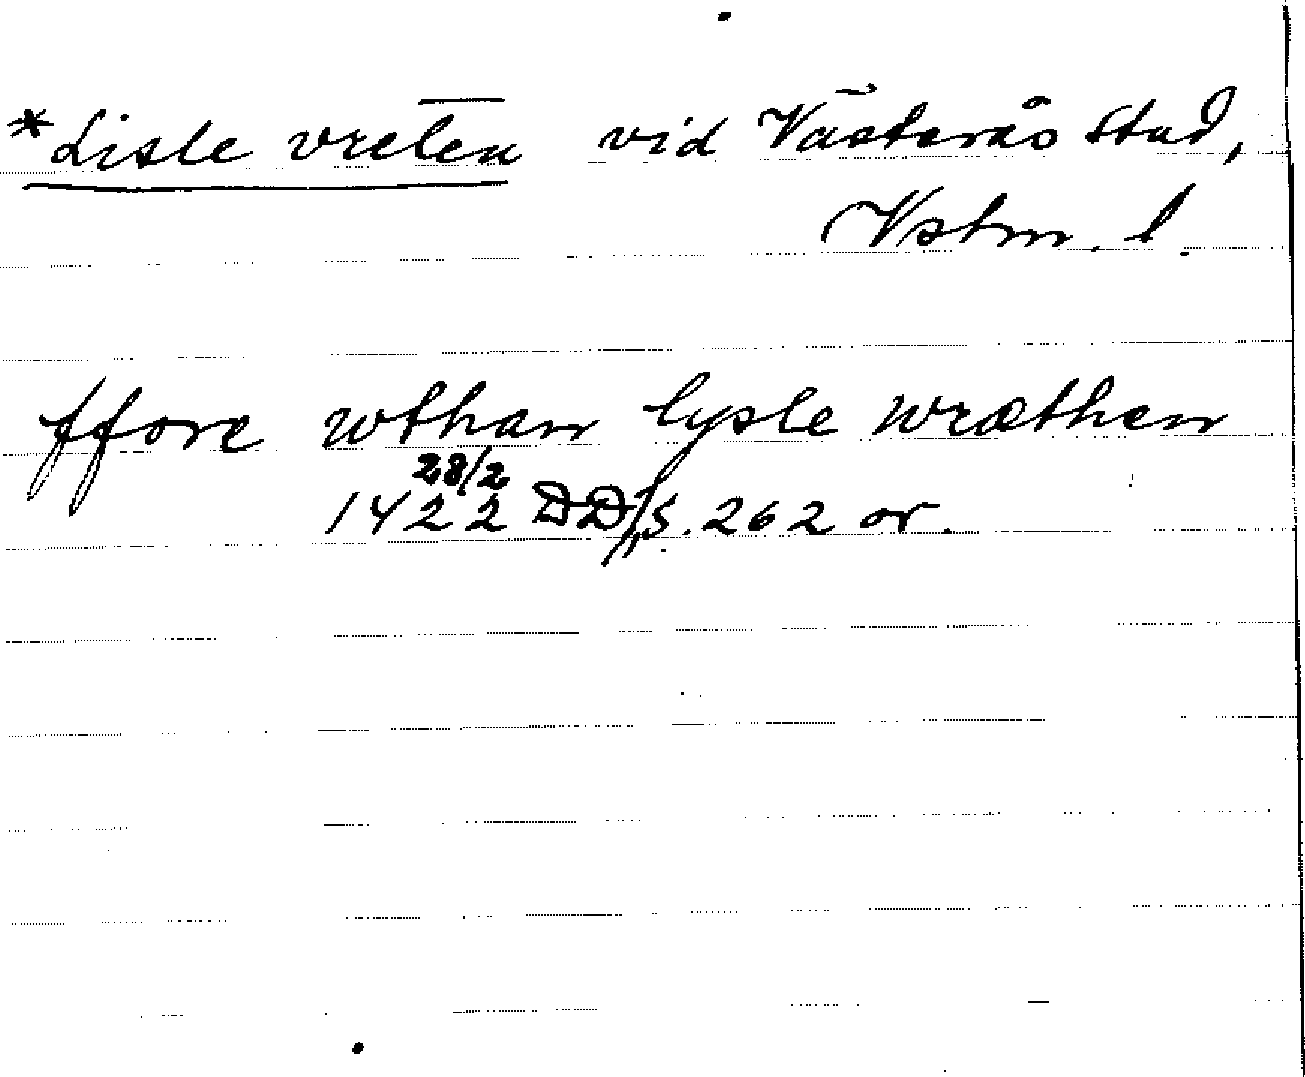 *Lisle vreten vid Västerås stad,
Vstm. l.
ffore wthan lysle wræthen
28/2
1422 DD, s. 262 or.